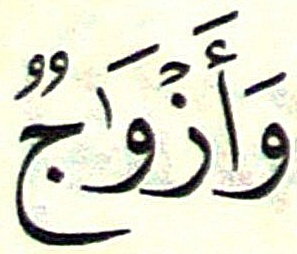 وَأَزْوَٰجٌ